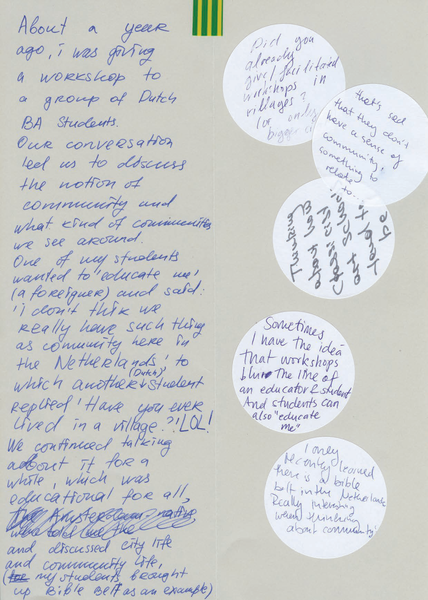 About a year
ago, i was giving
a workshop to
a group of Dutch
BA students.
Our conversation
led us to discuss
the notion of
community and
what kind of communities
we see around.
One of my students
wanted to 'educate me'
(a foreigner) and said:
'i don't think we
really have such thing
as community here in
the Netherlands' to
which another (Dutch) student
replied 'Have you ever
lived in a village?!' LOL!
We continued talking
about it for a
while, which was
educational for all,
and, discussed city life
and community life,
(my students brought
up Bible Belt as an example)
Did you
already
give/facilitated
workshops in
villages?
Or only
bigger
that's sad
that they don't
have a sense of
community.
something to
relate to.
Thinking
about how
city
art school
to
be
Sometimes
I have the idea
that workshops
blur the line of
an educator & student
And students can
also "educate
me"
I only
recently learned
there is a bible
belt in the Netherlands
Really interesting
when thinking
about community!